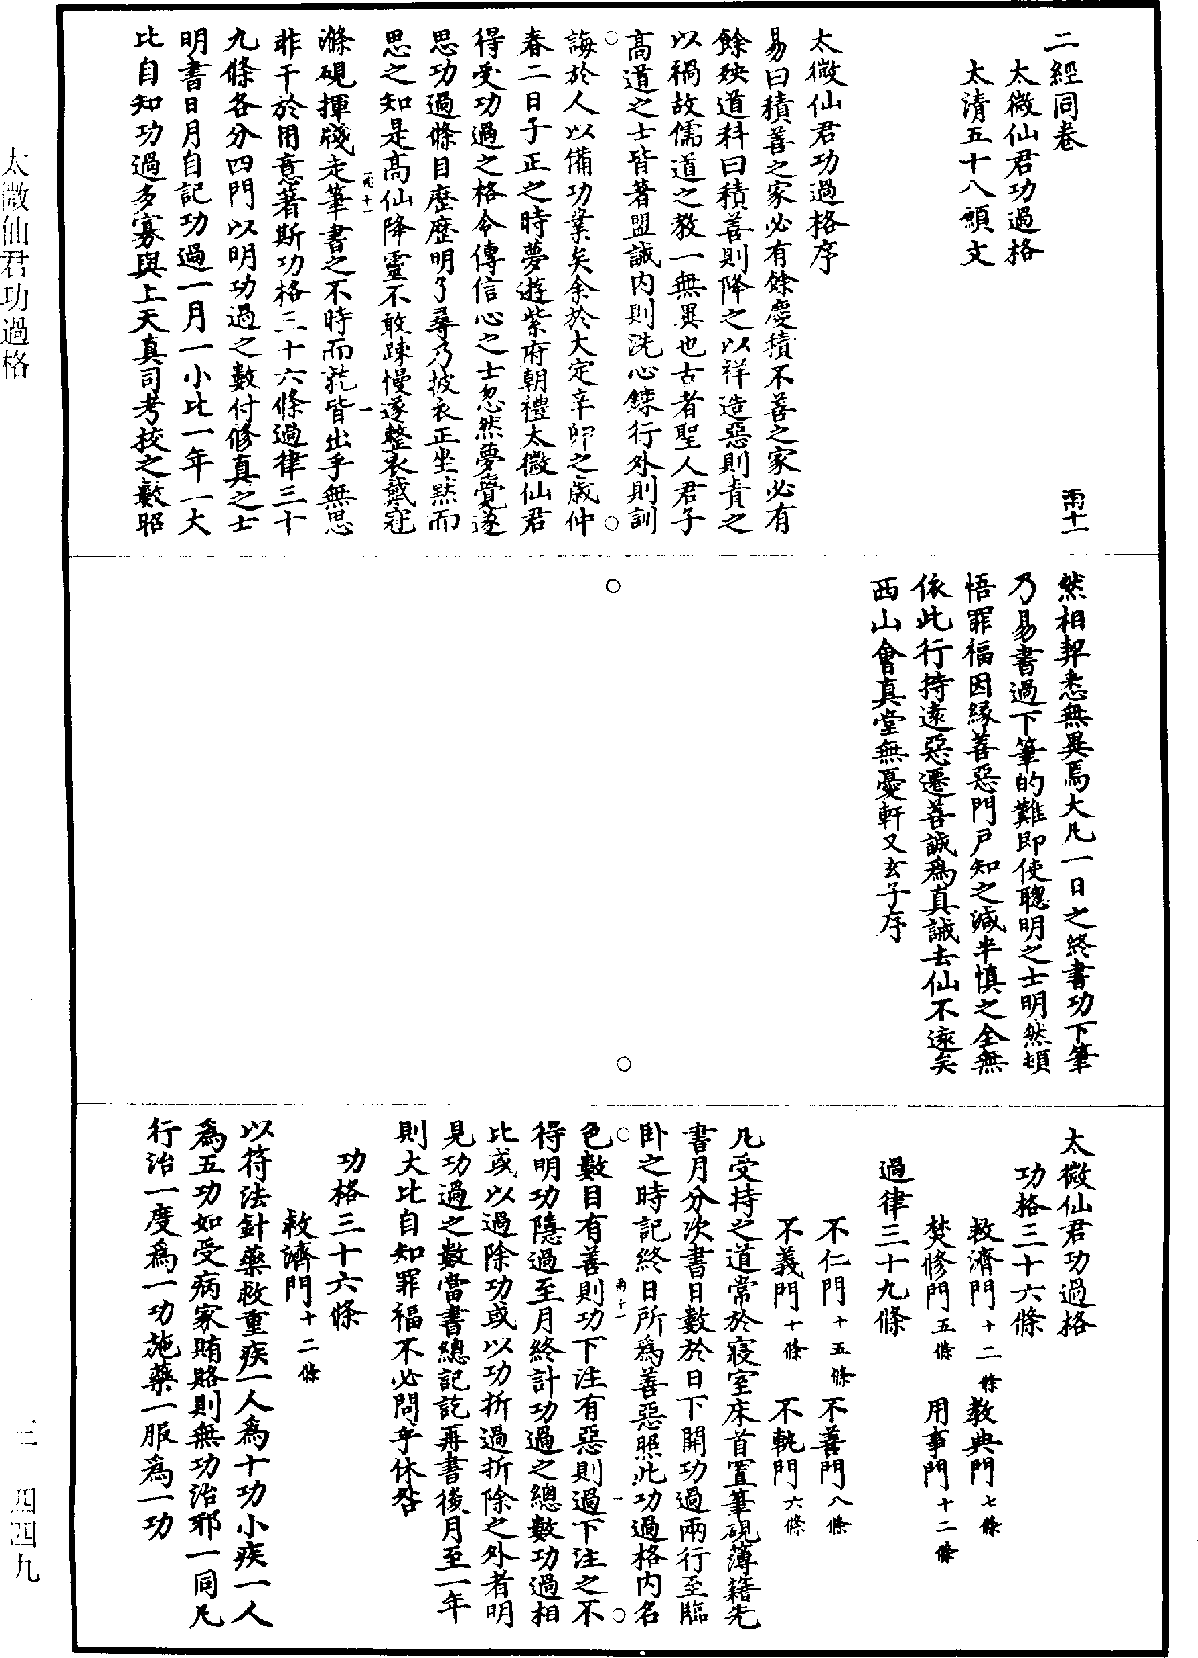 二經同卷
雨十一
太微仙君功過格
太清五十八願文
太微仙君功過格序
易曰積善之家必有餘慶積不善之家必有
餘殃道科曰積善則降之以祥造惡則責之
以禍故儒道之教一無異也古者聖人君子
高道之士皆著盟誠內則洗心鍊行外則訓
誨於人以備功業矣余於大定辛卯之歲仲
春二日子正之時夢遊紫府朝禮太微仙君
得受功過之格令傳信心之士忽然夢覺遂
思功過條目歷歷明了尋乃披衣正坐默而
思之知是高仙降靈不敢踈慢遂整衣戴冠
雨十一
一
滌硯揮牋走筆書之不時而就皆出乎無思
非干於用意著斯功格三十六條過律三十
九條各分四門以明功過之數付修真之士
明書日月自記功過一月一小比一年一大
比自知功過多寡與上天真司考校之數昭
然相契悉無異焉大凡一日之終書功下筆
乃易書過下筆的難即使聰明之士明然頓
悟罪福因緣善惡門戶知之減半慎之全無
依此行持遠惡遷善誠為真誠去仙不遠矣
西山會真堂無憂軒又玄子序
太微仙君功過格
功格三十六條
救濟門十二條
教典門七條
焚修門五條
用事門十二條
過律三十九條
不仁門十五條
不善門八條
不義門十條
不軌門六條
凡受持之道常於寢室床首置筆硯簿籍先
書月分次書日數於日下開功過兩行至臨
臥之時記終日所為善惡照此功過格內名
色數目有善則功下注有惡則過下注之不
雨十一
一
得明功隱過至月終計功過之總數功過相
比或以過除功或以功折過折除之外者明
見功過之數當書總記訖再書後月至一年
則大比自知罪福不必問乎休咎
功格三十六條
救濟門十二條
以符法針藥救重疾一人為十功小疾一人
為五功如受病家賄賂則無功治邪一同凡
行治一度為一功施藥一服為一功
太微仙君功過格
三 四四九